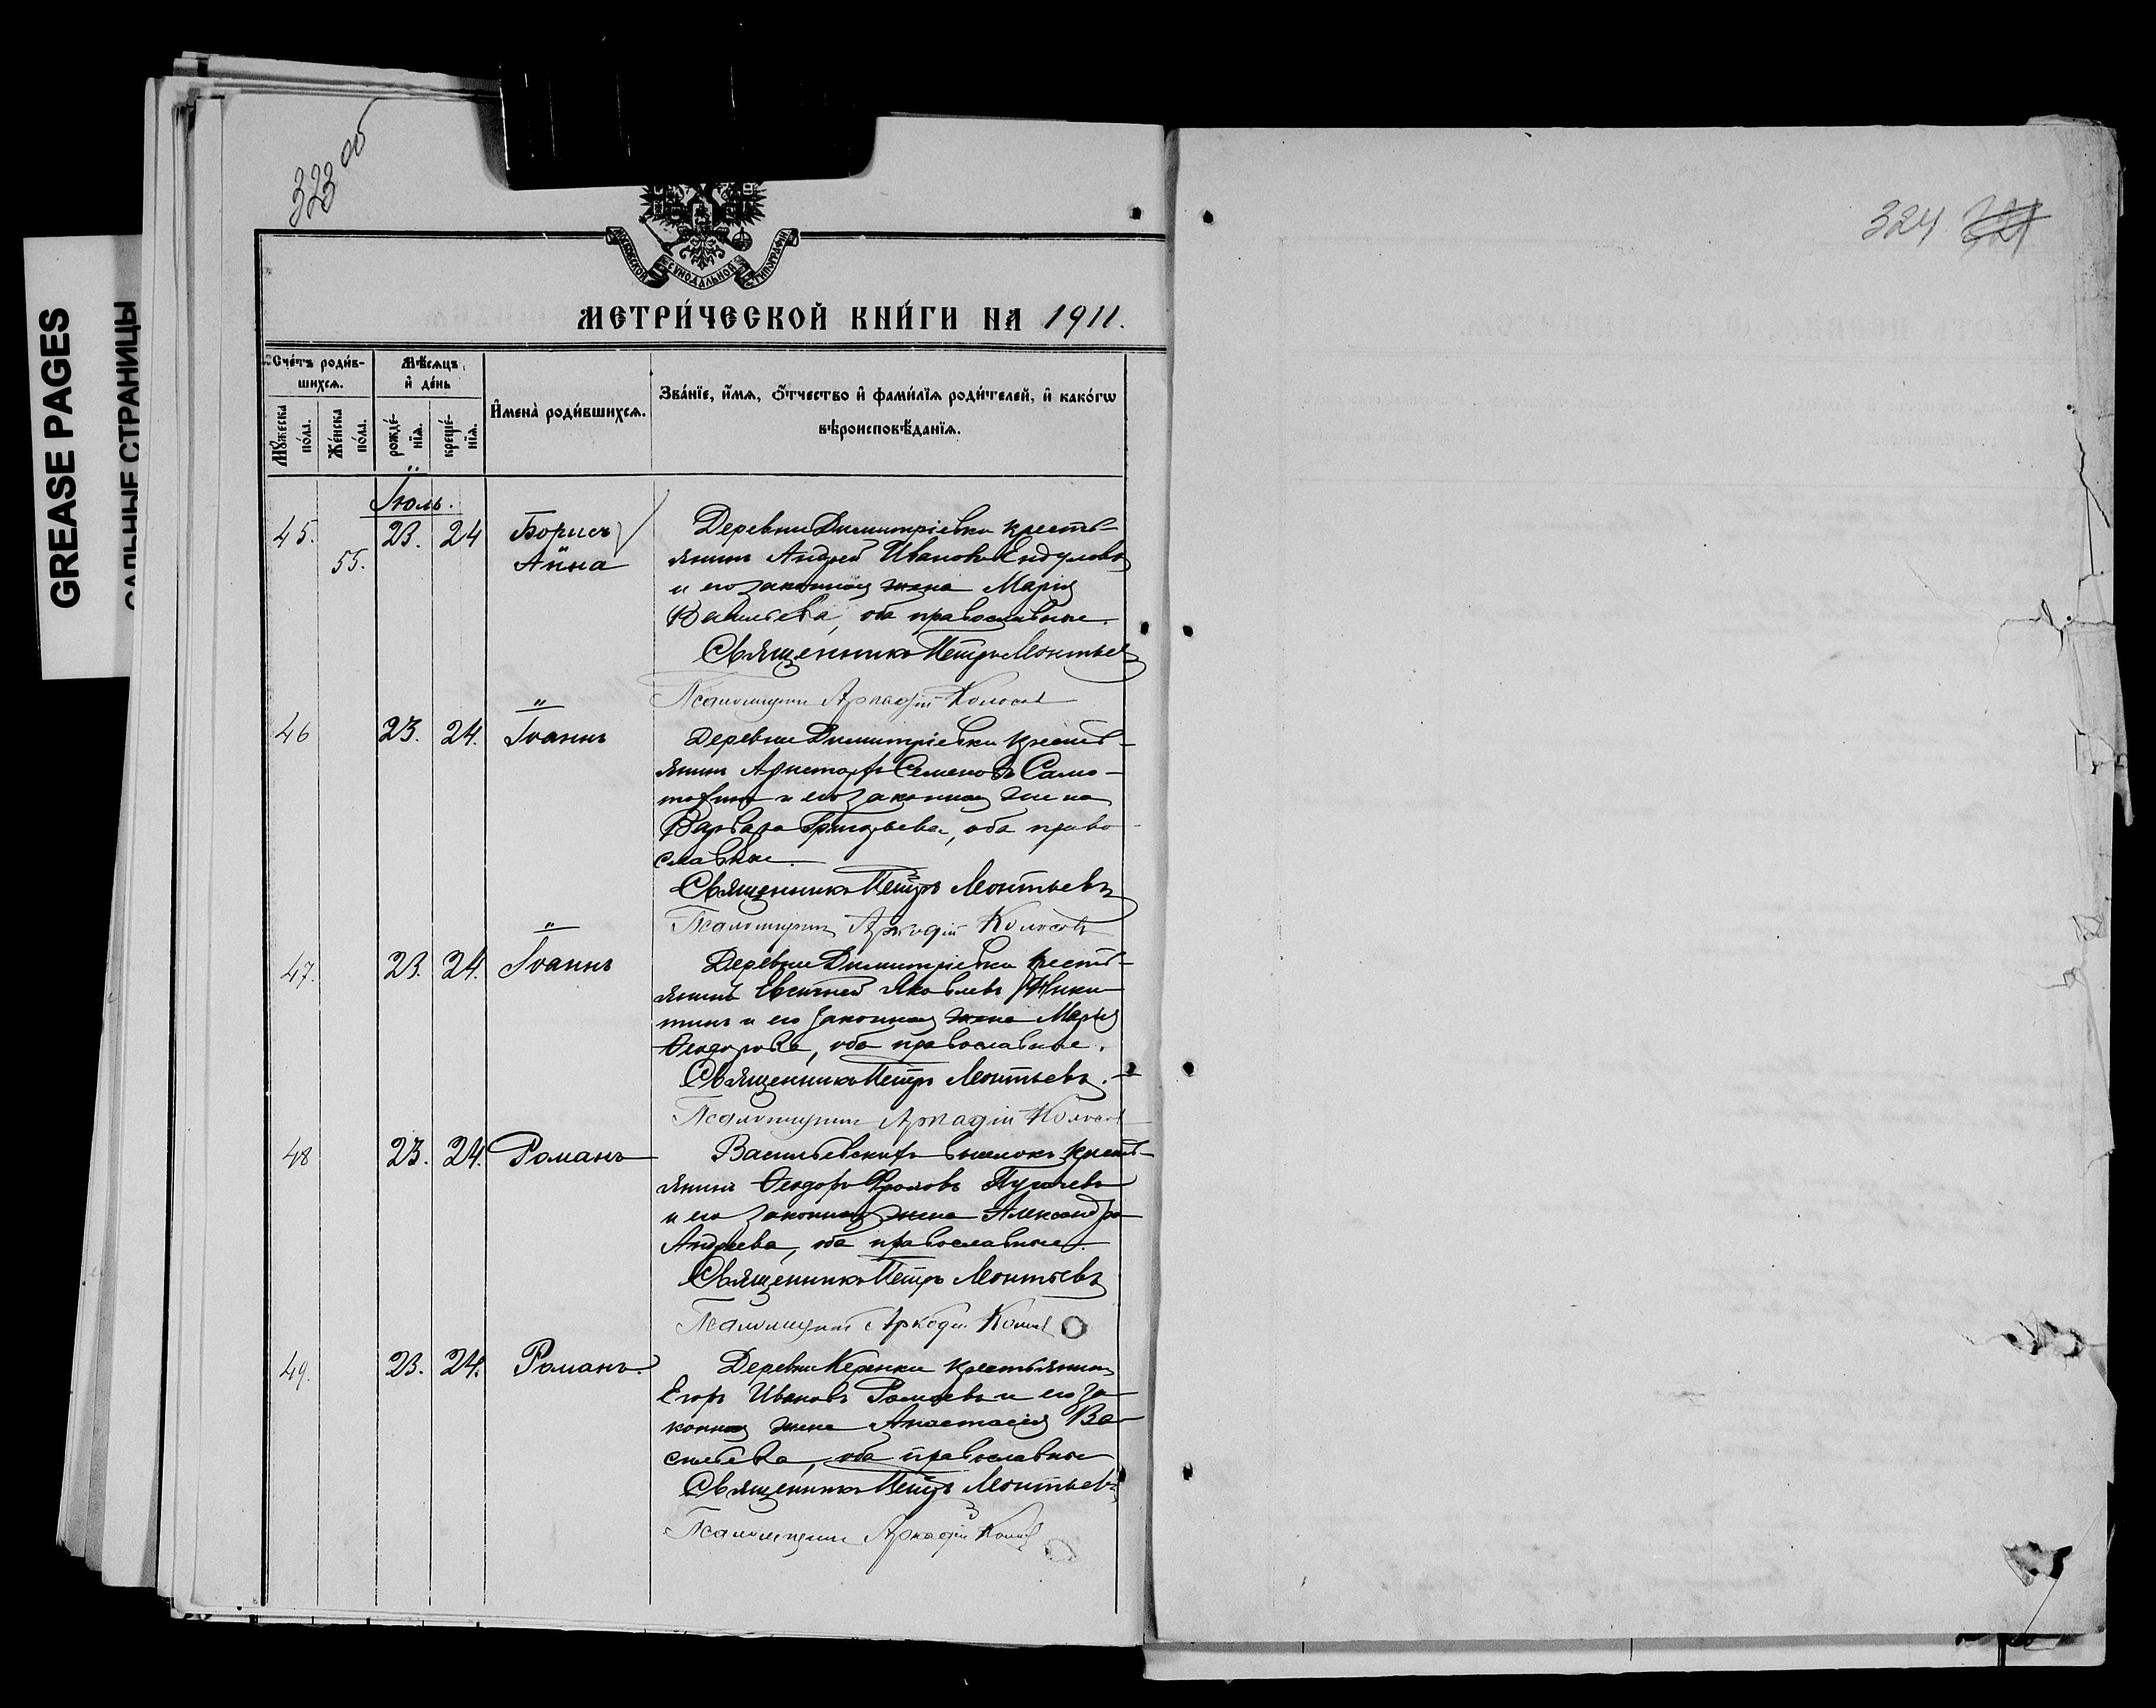 323 об
324 321
GREASE PAGES
САЛЬНЫЕ СТРАНИЦЫ
МОСКОВСКОЙ СѴНОДАЛЬНОЙ ТИПОГРАФІИ
МЕТРИ́ЧЕСКОЙ КНИ́ГИ НА 1911.
Сче́тъ роди́в-
шихсѧ.
Мꙋжеска
по́ла.
Же́нска
по́ла.
Мѣ́сѧцъ
и҆ де́нь
рожде́-
нїѧ.
креще́-
нїѧ.
И҆мена̀ роди́вшихсѧ.
Зва́нїе, и҆́мѧ, ѻ҆́тчество и҆ фами́лїѧ роди́телей, и҆ како́гѡ
вѣроисповѣ́данїѧ.
Іюль.
45. 23. 24 Борисъ
55. Анна
Деревни Димитріевки кресть-
янинъ Андрей Ивановъ Ендуловъ
и его законная жена Марія
Васильева, оба православные.
Священникъ Петръ Леонтьев
Псаломщикъ Аркадій Колосов
46 23. 24. Іоаннъ
Деревни Димитріевки кресть-
янинъ Аристархъ Семеновъ Само-
и его законная жена
Варвара Григорьева, оба право-
славные.
Священникъ Петръ Леонтьевъ
Псаломщикъ Аркадій Колосовъ
47. 23. 24. Іоаннъ
Деревни Димитріевки кресть-
янинъ Евсигней Яковлевъ Ники-
тинъ и его законная жена Марія
Ѳеодорова, оба православные.
Священникъ Петръ Леонтьевъ.
Псаломщикъ Аркадій Колосов
48 23. 24. Романъ
Васильевскихъ выселокъ кресть-
янинъ Ѳеодоръ Фроловъ Пугачевъ
и его законная жена Александра
Андреева, оба православные.
Священникъ Петръ Леонтьевъ
Псаломщикъ Аркадій
49. 23. 24. Романъ.
Деревни Керенки крестьянинъ
Егоръ Ивановъ и его за-
конная жена Анастасія Ва-
сильева, оба православные
Священникъ Петръ Леонтьевъ
Псаломщикъ Аркадій